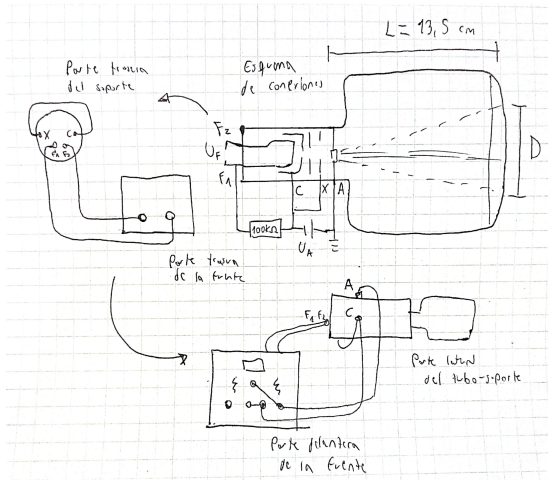 L = 13,5 cm
Parte trasera
del soporte
Esquema
de conexiones
X C
F1 F2
F2
UF
F1
C X A
D
100kΩ
UA
Parte trasera
de la fuente
A
C
F1 F2
Parte lateral
del tubo-soporte
Parte delantera
de la fuente